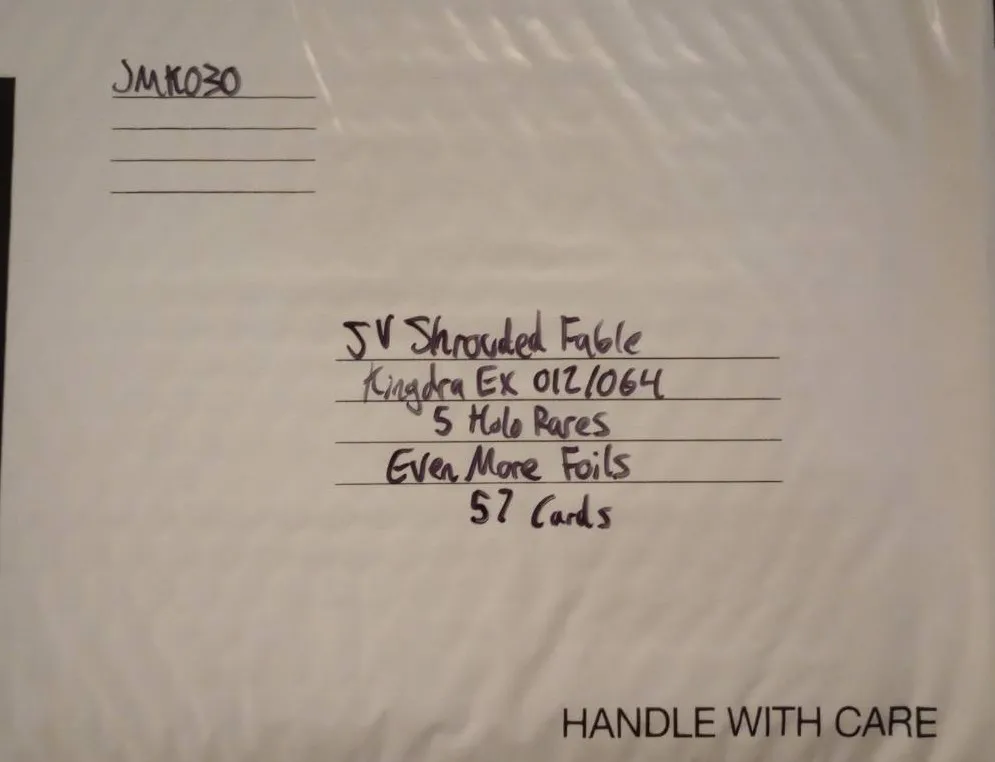 JMK030
SV Shrouded Fable
Kingdra Ex 012/064
5 Holo Rares
Even More Foils
57 Cards
HANDLE WITH CARE